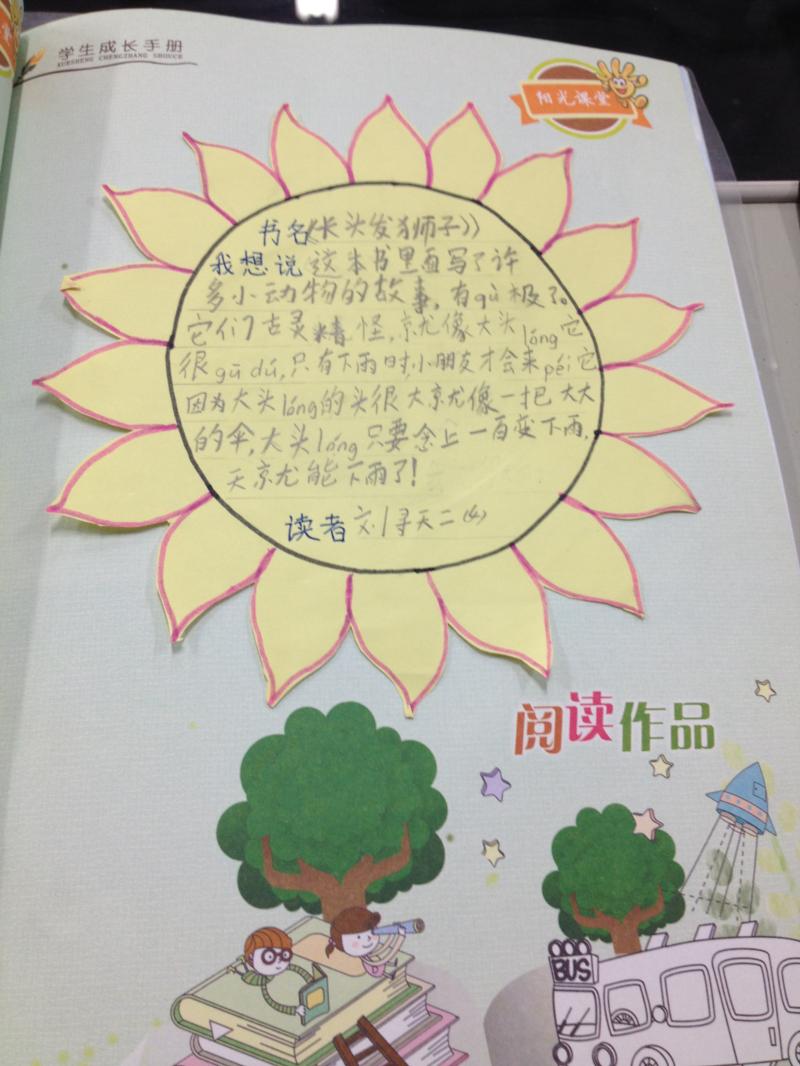 学生成长手册
XUESHENG CHENGZHANG SHOUCE
阳光课堂
书名《长头发狮子》
我想说这本书里面写了许
多小动物的故事,有gù极了。
它们古灵精怪,就像大头lóng它
很gū dú,只有下雨时,小朋友才会来péi它
因为大头lóng的头很大就像一把大大
的伞,大头lóng只要念上一百变下雨,
天就能下雨了!
读者 刘寻天二(4)
阅读作品
BUS